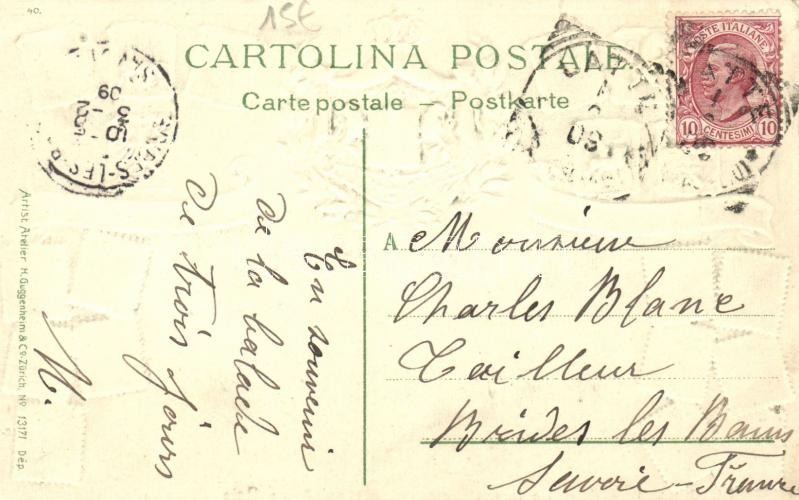 40.
15€
CARTOLINA POSTALE
Carte postale – Postkarte
POSTE ITALIANE
10 CENTESIMI 10
09
En souvenir
de la balade
de trois jours
M.
A Monsieur
Charles Blanc
Tailleur
Brides les Bains
Savoie – France
Artist. Atelier H. Guggenheim & Co. Zürich. No 13171 Dép.